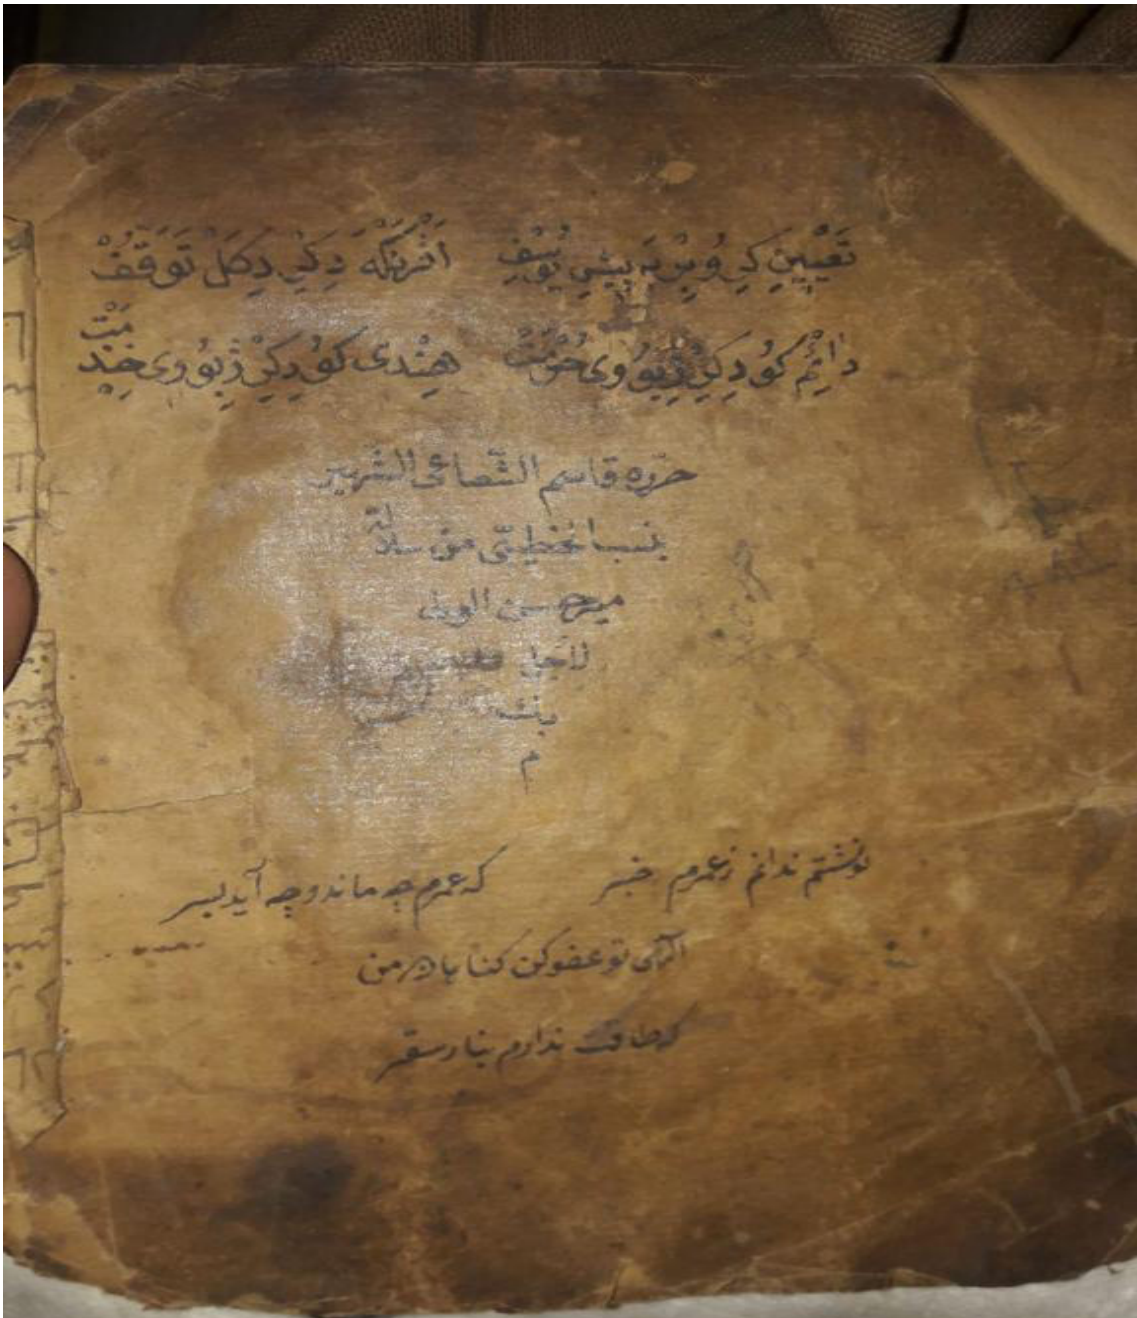 تَعْيِينِ كِرِ وِبِرْ بَه پِيشِي يُوسُفِ اَثْرَنَكَه دِكِرِ دِكَلْ تَوَقُفْ
دَائِمْ كُو دِكِرْ ژِبُو وِى حُرْمَتْ هِنْدِى كُو دِكِرْ ژِبُو وِى خِدْمَتْ
حرره قاسم الشهير
بنسبا من سلالة
ميرحسن الولي
لاجل
م
نوشتم ندانم زعمرم خبر كه عمرم چه ماند و چه آيد بسر
الهى تو عفو كن كناهان من
كه طاقت ندارم بنار سقر